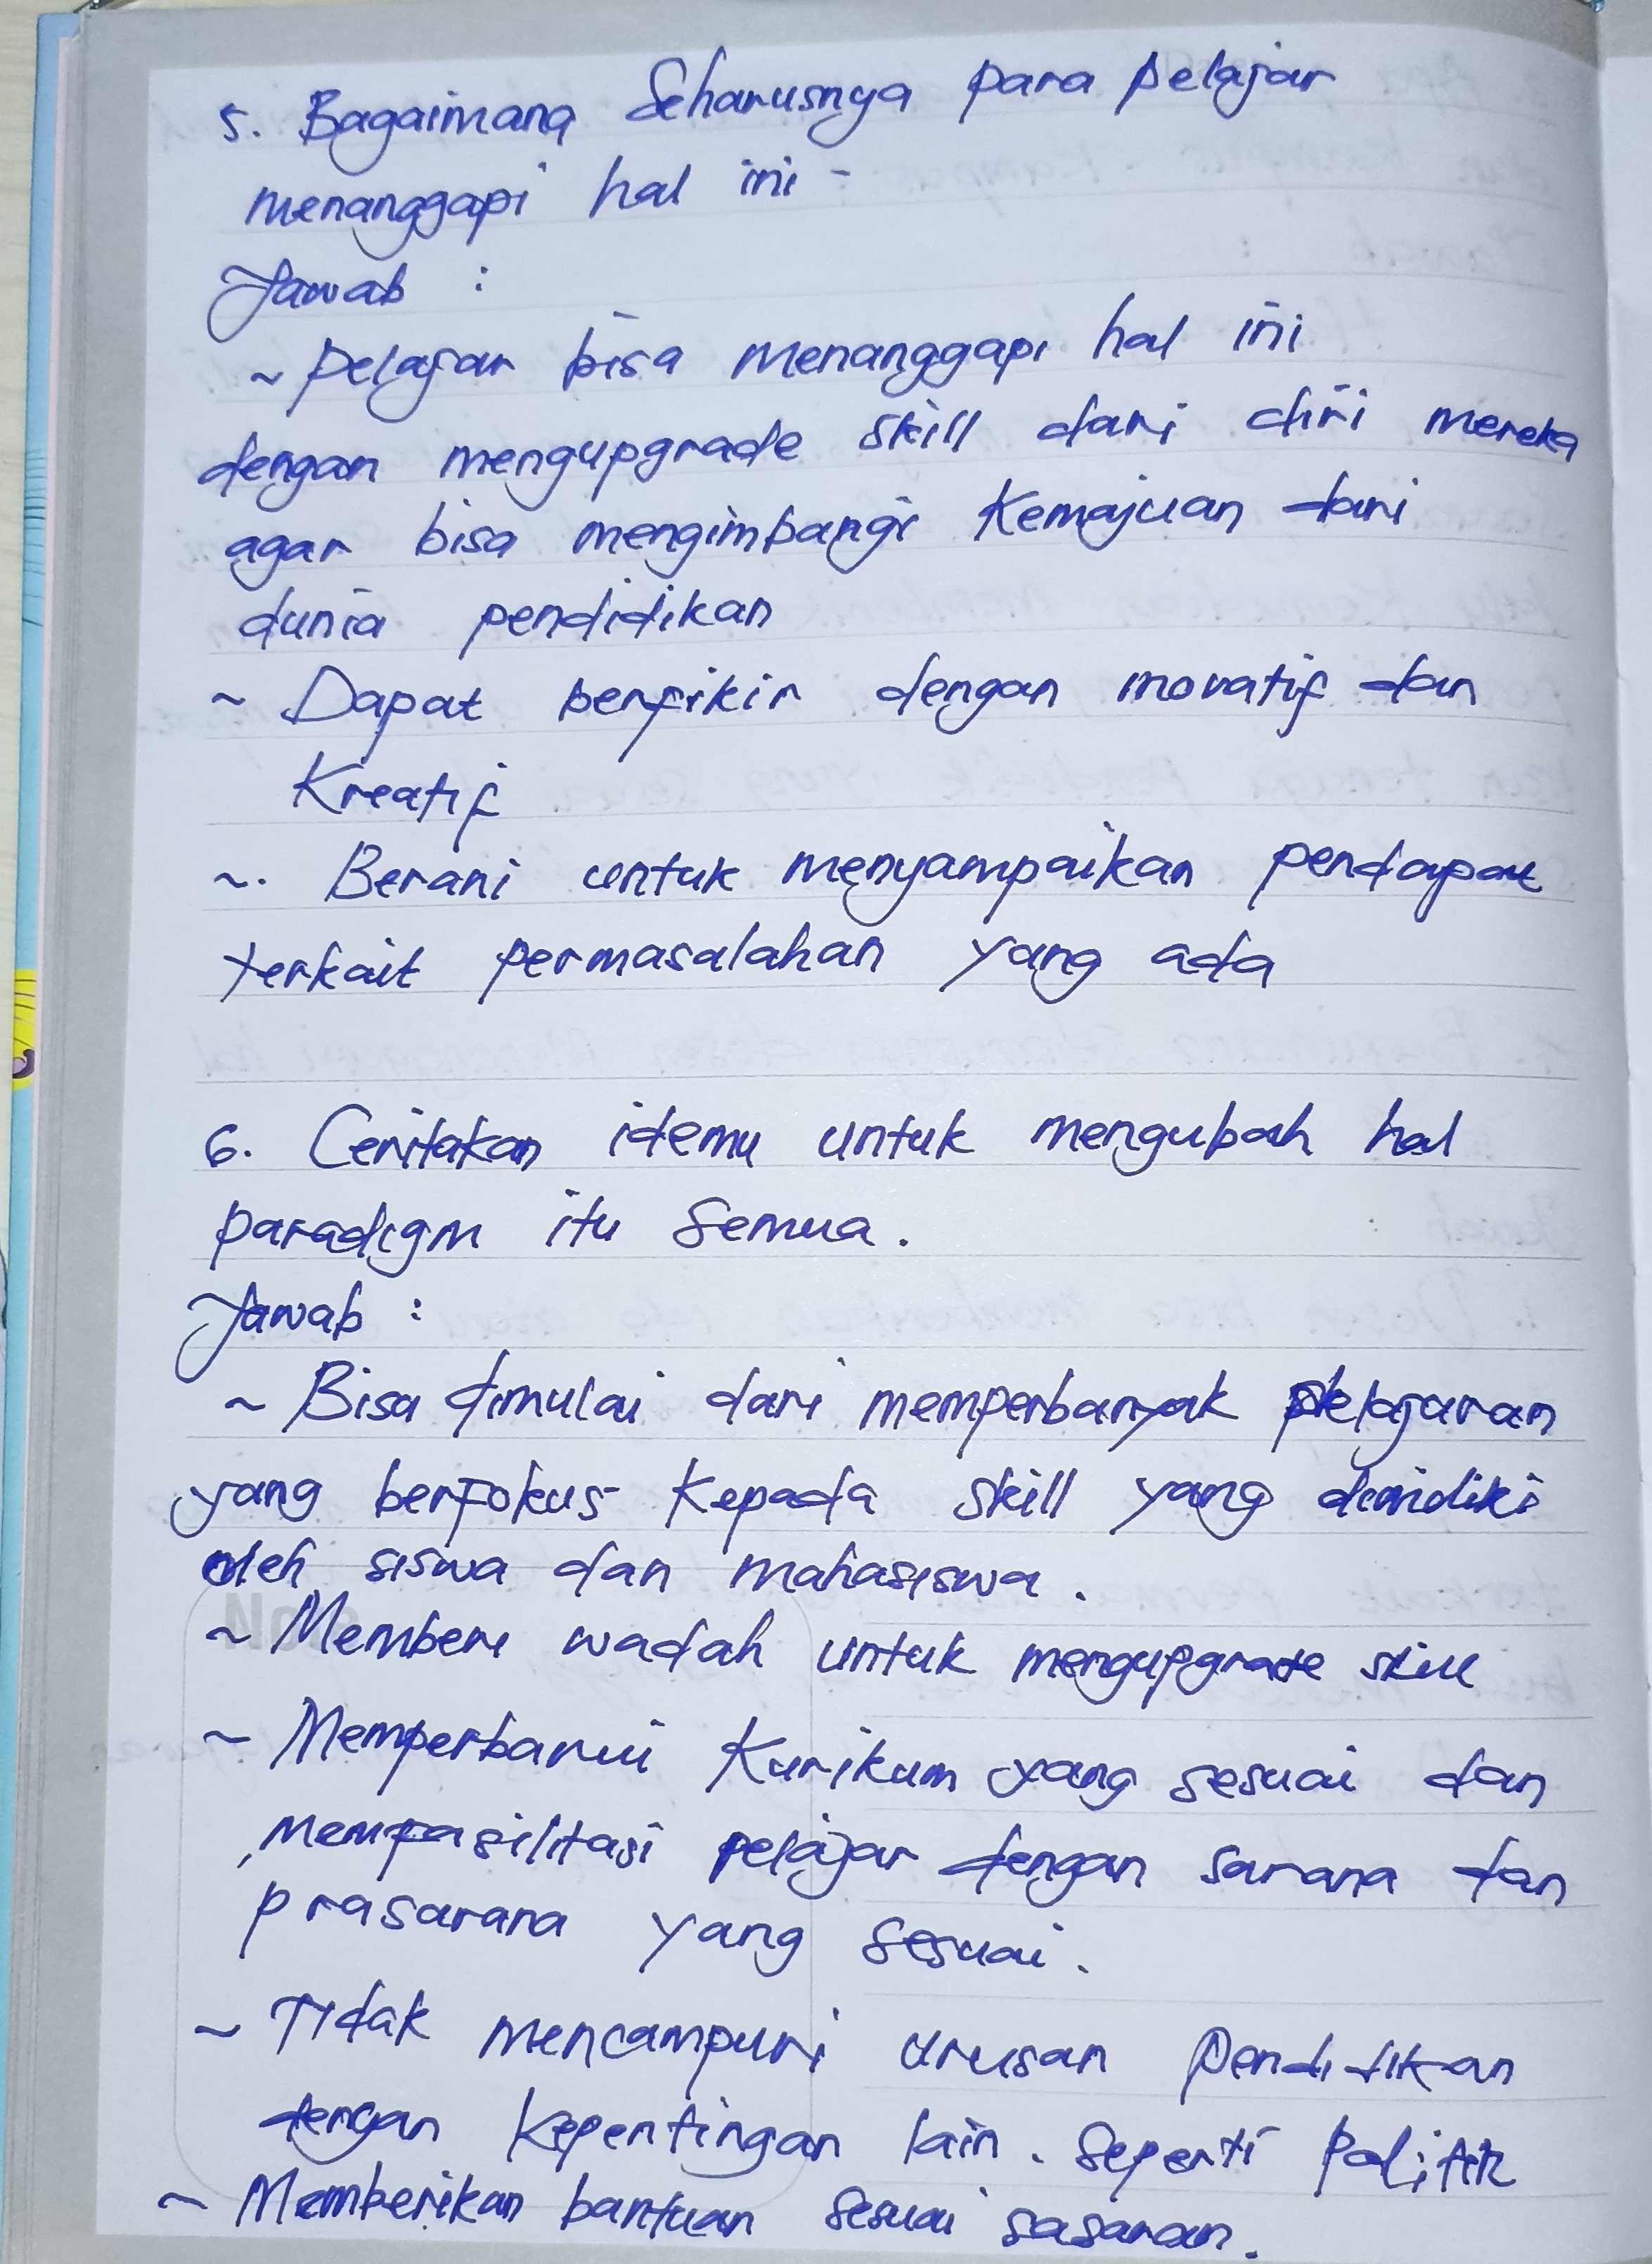 5. Bagaimana seharusnya para pelajar
menanggapi hal ini -
Jawab :
~ pelajar bisa menanggapi hal ini
dengan mengupgrade skill dari diri mereka
agar bisa mengimbangi kemajuan dari
dunia pendidikan
~ Dapat berfikir dengan inovatif dan
Kreatif
~. Berani untuk menyampaikan pendapat
terkait permasalahan yang ada
6. Ceritakan idemu untuk mengubah hal
paradigm itu semua.
Jawab :
~ Bisa dimulai dari memperbanyak pelajaran
yang berfokus kepada skill yang dimidiki
oleh siswa dan mahasiswa.
~ Memberi wadah untuk mengupgrade skill
~ Memperbarui Kurikum yang sesuai dan
, mempasilitasi pelajar dengan sarana dan
prasarana yang sesuai.
~ Tidak mencampuri urusan pendidikan
dengan kepentingan lain. seperti politik
~ Memberikan bantuan sesuai sasaran.